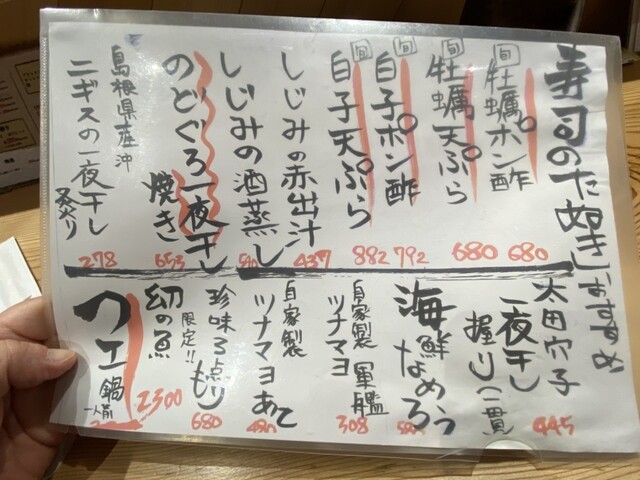 寿司のためき おすすめ
旬 牡蠣ポン酢 680
旬 牡蠣天ぷら 680
旬 白子ポン酢 792
旬 白子天ぷら 882
しじみの赤出汁 437
しじみの酒蒸し
のどぐろ一夜干し焼き 653
島根県産沖
ニギスの一夜干し炙り 278
太田穴子
一夜干し
握り(一貫) 445
海鮮なめろう
自家製 軍艦
ツナマヨ 308
自家製
ツナマヨあて 480
珍味3点もり
限定!! 680
幻の魚 2300
クエ鍋 一人前